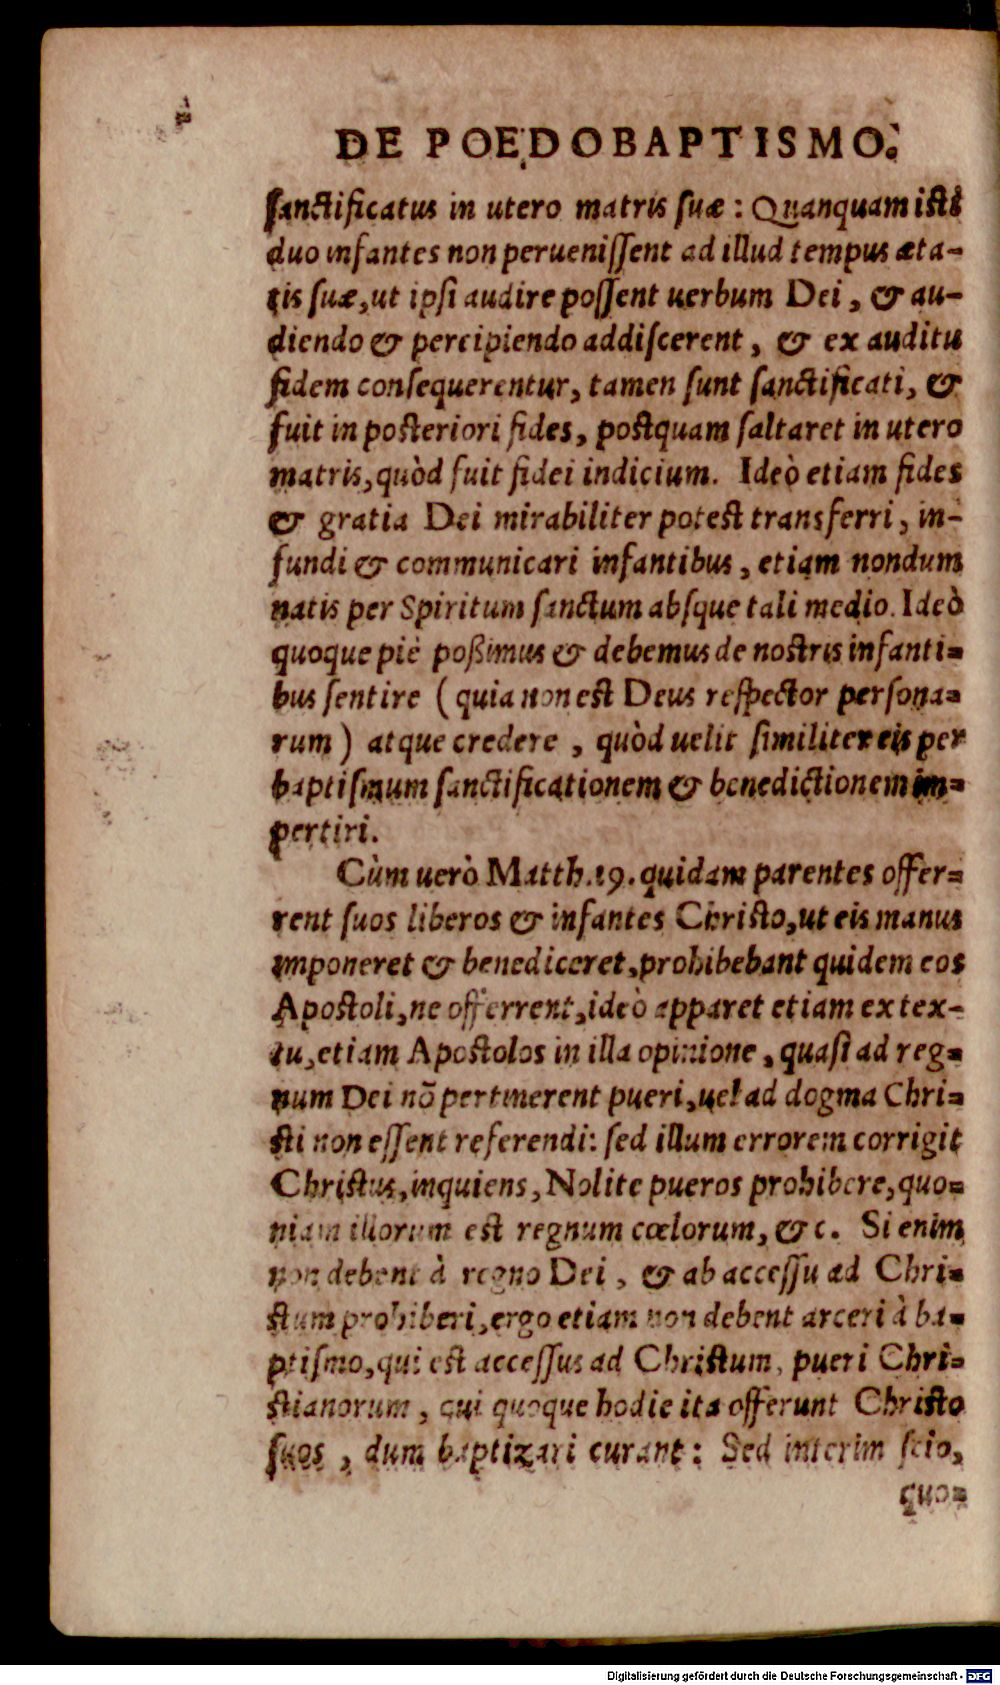 DE POEDOBAPTISMO.
ſanctificatus in utero matris ſuæ : Quanquam iſti
duo infantes non perueniſſent ad illud tempus æta-
tis ſuæ, ut ipſi audire poſſent uerbum Dei, & au-
diendo & percipiendo addiſcerent, & ex auditu
fidem conſequerentur, tamen ſunt ſanctificati, &
fuit in poſteriori fides, poſtquam ſaltaret in utero
matris, quòd fuit fidei indicium. Ideò etiam fides
& gratia Dei mirabiliter poteſt transferri, in-
fundi & communicari infantibus, etiam nondum
natis per Spiritum ſanctum abſque tali medio. Ideò
quoque piè poßimus & debemus de noſtris infanti-
bus ſentire ( quia non eſt Deus reſpector perſona-
rum ) atque credere , quòd uelit ſimiliter eis per
baptiſmum ſanctificationem & benedictionem im-
pertiri.
Cùm uerò Matth. 19. quidam parentes offer-
rent ſuos liberos & infantes Chriſto, ut eis manus
imponeret & benediceret, prohibebant quidem eos
Apoſtoli, ne offerrent, ideò apparet etiam ex tex-
tu, etiam Apoſtolos in illa opinione, quaſi ad reg-
num Dei nō pertinerent pueri, uel ad dogma Chri-
ſti non eſſent referendi: ſed illum errorem corrigit
Chriſtus, inquiens, Nolite pueros prohibere, quo-
niam illorum eſt regnum cœlorum, &c. Si enim
non debent à regno Dei, & ab acceſſu ad Chri-
ſtum prohiberi, ergo etiam non debent arceri à ba-
ptiſmo, qui eſt acceſſus ad Chriſtum, pueri Chri-
ſtianorum , qui quoque hodie ita offerunt Chriſto
ſuos , dum baptizari curant : Sed interim ſcio,
quo-
Digitalisierung gefördert durch die Deutsche Forschungsgemeinschaft - DFG